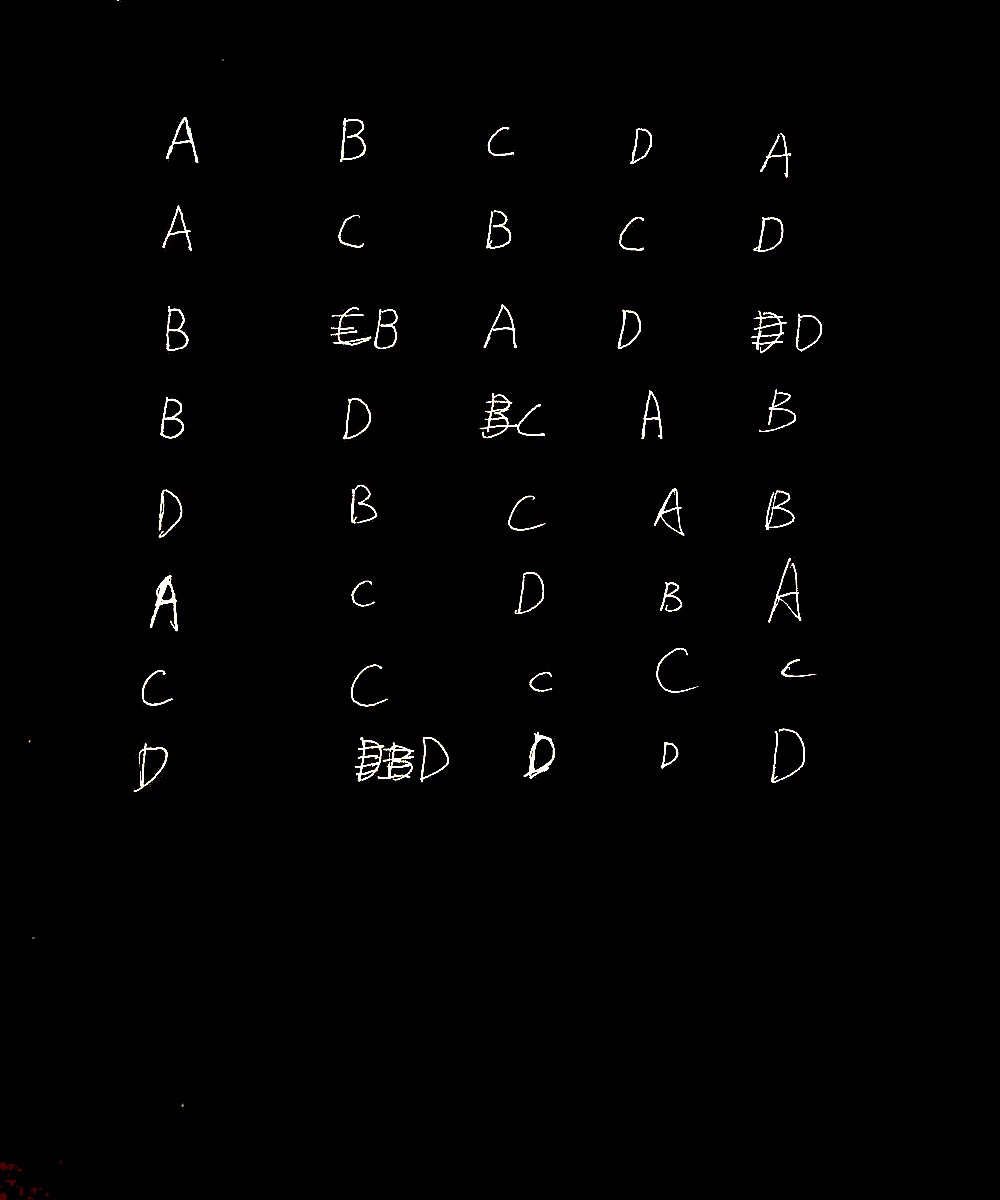 A B C D A
A C B C D
B B A D D
B D C A B
D B C A B
A C D B A
C C C C C
D D D D D